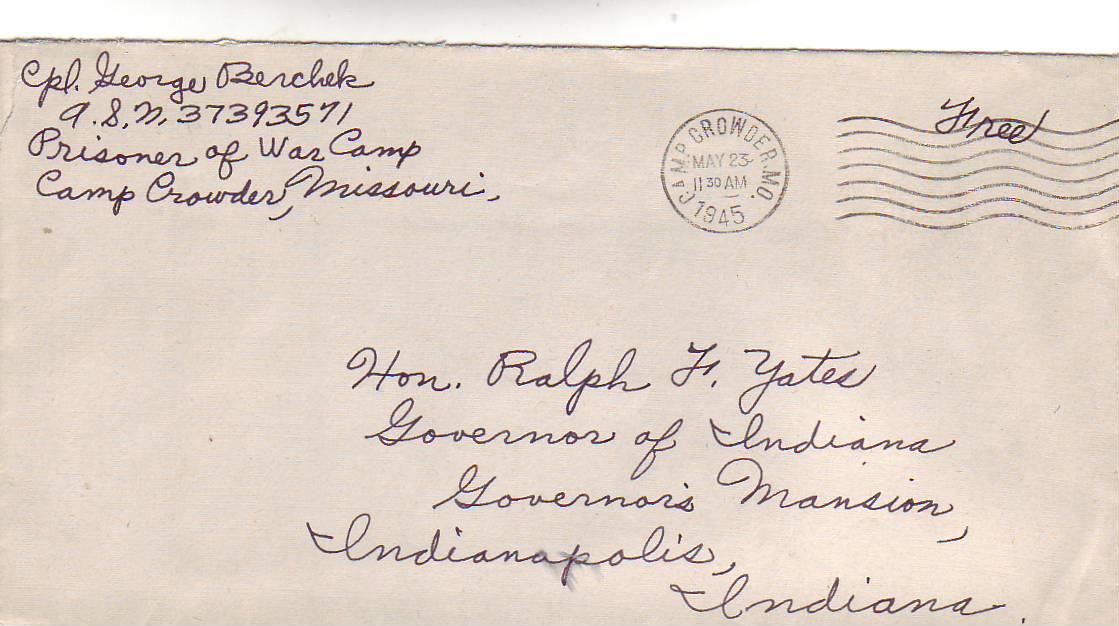 Cpl. George Berchek
A.S.N. 37393571
Prisoner of War Camp
Camp Crowder, Missouri,
CAMP CROWDER, MO.
MAY 23
11 30 AM
1945
Free
Hon. Ralph F. Yates
Governor of Indiana
Governor's Mansion,
Indianapolis,
Indiana.